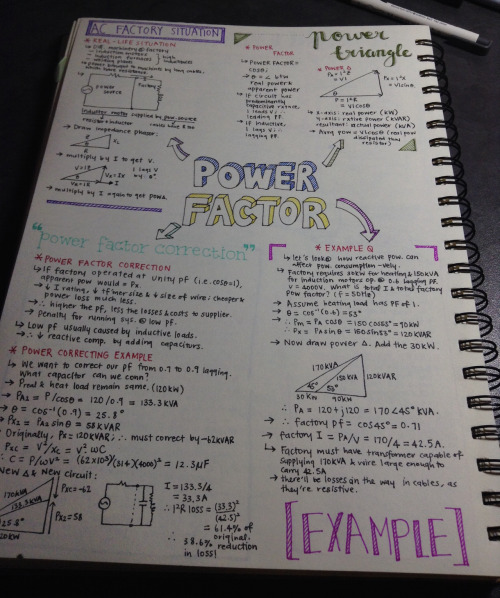 AC FACTORY SITUATION
* REAL-LIFE SITUATION
- induction motors
- induction furnaces
- welding plants
high inductances
power source
Factory
→ Draw impedance phasor:
R
→ multiply by I to get V.
I lags V by θ°
→ multiply by I again to get powa.
* POWER FACTOR
→ POWER FACTOR = cosθ.
→ θ = ∠ btw real power & apparent power
→ If circuit has predominantly capacitive rctnce, I leads V ∴ leading PF.
→ If inductive, I lags V ∴ lagging PF.
power triangle
* POWER Δ
PA = I²Z = VI
PX = I²X = VIsinθ
P = I²R = VIcosθ
→ x-axis: real power (kW)
resultant: actual power (kVA)
POWER FACTOR
"power factor correction"
* POWER FACTOR CORRECTION
↳ If factory operated at unity pf (i.e. cosθ=1), apparent pow would = PR.
power loss much less.
↳ ∴ higher the pf, less the losses & costs to supplier.
→ Penalty for running sys. @ low pf.
→ Low pf usually caused by inductive loads.
→ ∴ ↓ reactive comp. by adding capacitors.
* POWER CORRECTING EXAMPLE
↳ We want to correct our pf from 0.7 to 0.9 lagging. What capacitor can we conn?
→ Prod & heat load remain same. (120kW)
→ PA2 = P/cosθ = 120/0.9 = 133.3 kVA
→ θ = cos⁻¹(0.9) = 25.8°
→ PX2 = PA2 sinθ = 58 kVAR
→ Originally, PX = 120kVAR; ∴ must correct by -62kVAR
PXC = V²/XC = V²ωC
∴ C = P/ωV² = (62×10³)/(314)(4000)² = 12.3µF
New Δ & New circuit:
170kVA
133.3 kVA
25.8°
120kW
PXC = -62
PX2 = 58
I = 133.3/4
= 33.3A
∴ I²R loss = (33.3)²/(42.5)²
= 61.4% of original.
∴ 38.6% reduction in loss!
* EXAMPLE Q
↳ let's look @ how reactive pow. can affect pow. consumption -vely.
→ Factory requires 30kW for heating & 150kVA for induction motors op @ 0.6 lagging pf. V = 4000V. What is total I & total factory pow factor? (f = 50Hz)
→ Assume heating load has PF of 1.
→ θ = cos⁻¹(0.6) = 53°
→ ∴ PM = PA cosθ = 150 cos53° = 90kW
∴ PX = PA sinθ = 150 sin53° = 120kVAR
→ Now draw power Δ. Add the 30kW.
170 kVA
150 kVA
120kVAR
45°
53°
30 kW
90kW
∴ PA = 120 + j120 = 170∠45° kVA.
→ ∴ Factory pf = cos45° = 0.71
→ factory I = PA/V = 170/4 = 42.5A.
↳ Factory must have transformer capable of supplying 170kVA & wire large enough to carry 42.5A
→ there'll be losses on the way in cables, as they're resistive.
[EXAMPLE]